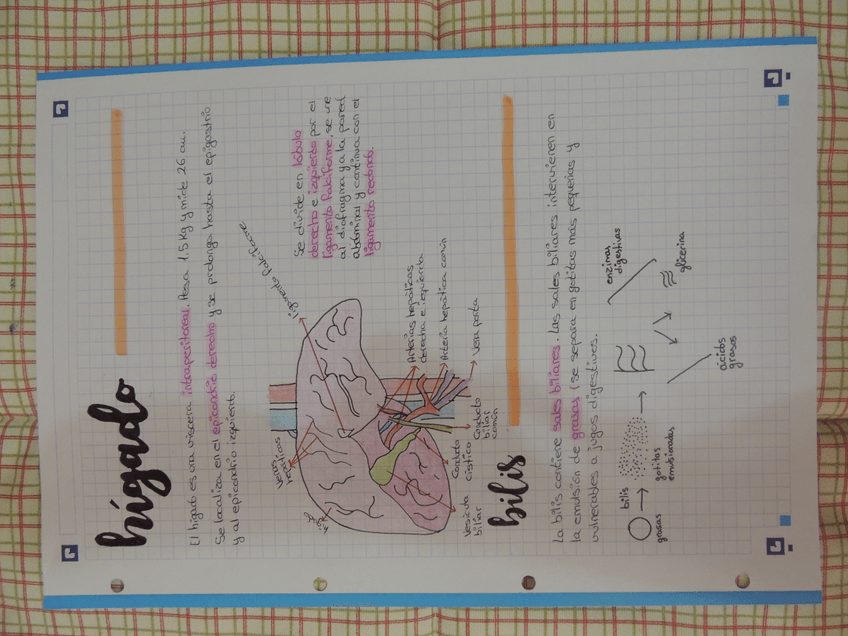 hígado
El hígado es una víscera intraperitoneal. Pesa 1.5 kg y mide 26 cm.
Se localiza en el epicondrio derecho y se prolonga hasta el epigastrio
y al epicondrio izquierdo.
ligamento falciforme
Se divide en lóbulo
derecho e izquierdo por el
ligamento falciforme, se une
al diafragma y a la pared
abdominal y continua con el
ligamento redondo.
Venas
hepáticas
Arterias hepáticas
derecha e izquierda
Arteria hepática común
Vena porta
Conducto
biliar
común
Conducto
cístico
Vesícula
biliar
bilis
La bilis contiene sales biliares. Las sales biliares intervienen en
la emulsión de grasas (se separa en gotitas más pequeñas y
vulnerables a jugos digestives.
grasas
bilis
gotitas
emulsionadas
enzimas
digestivas
glicerina
ácidos
grasos